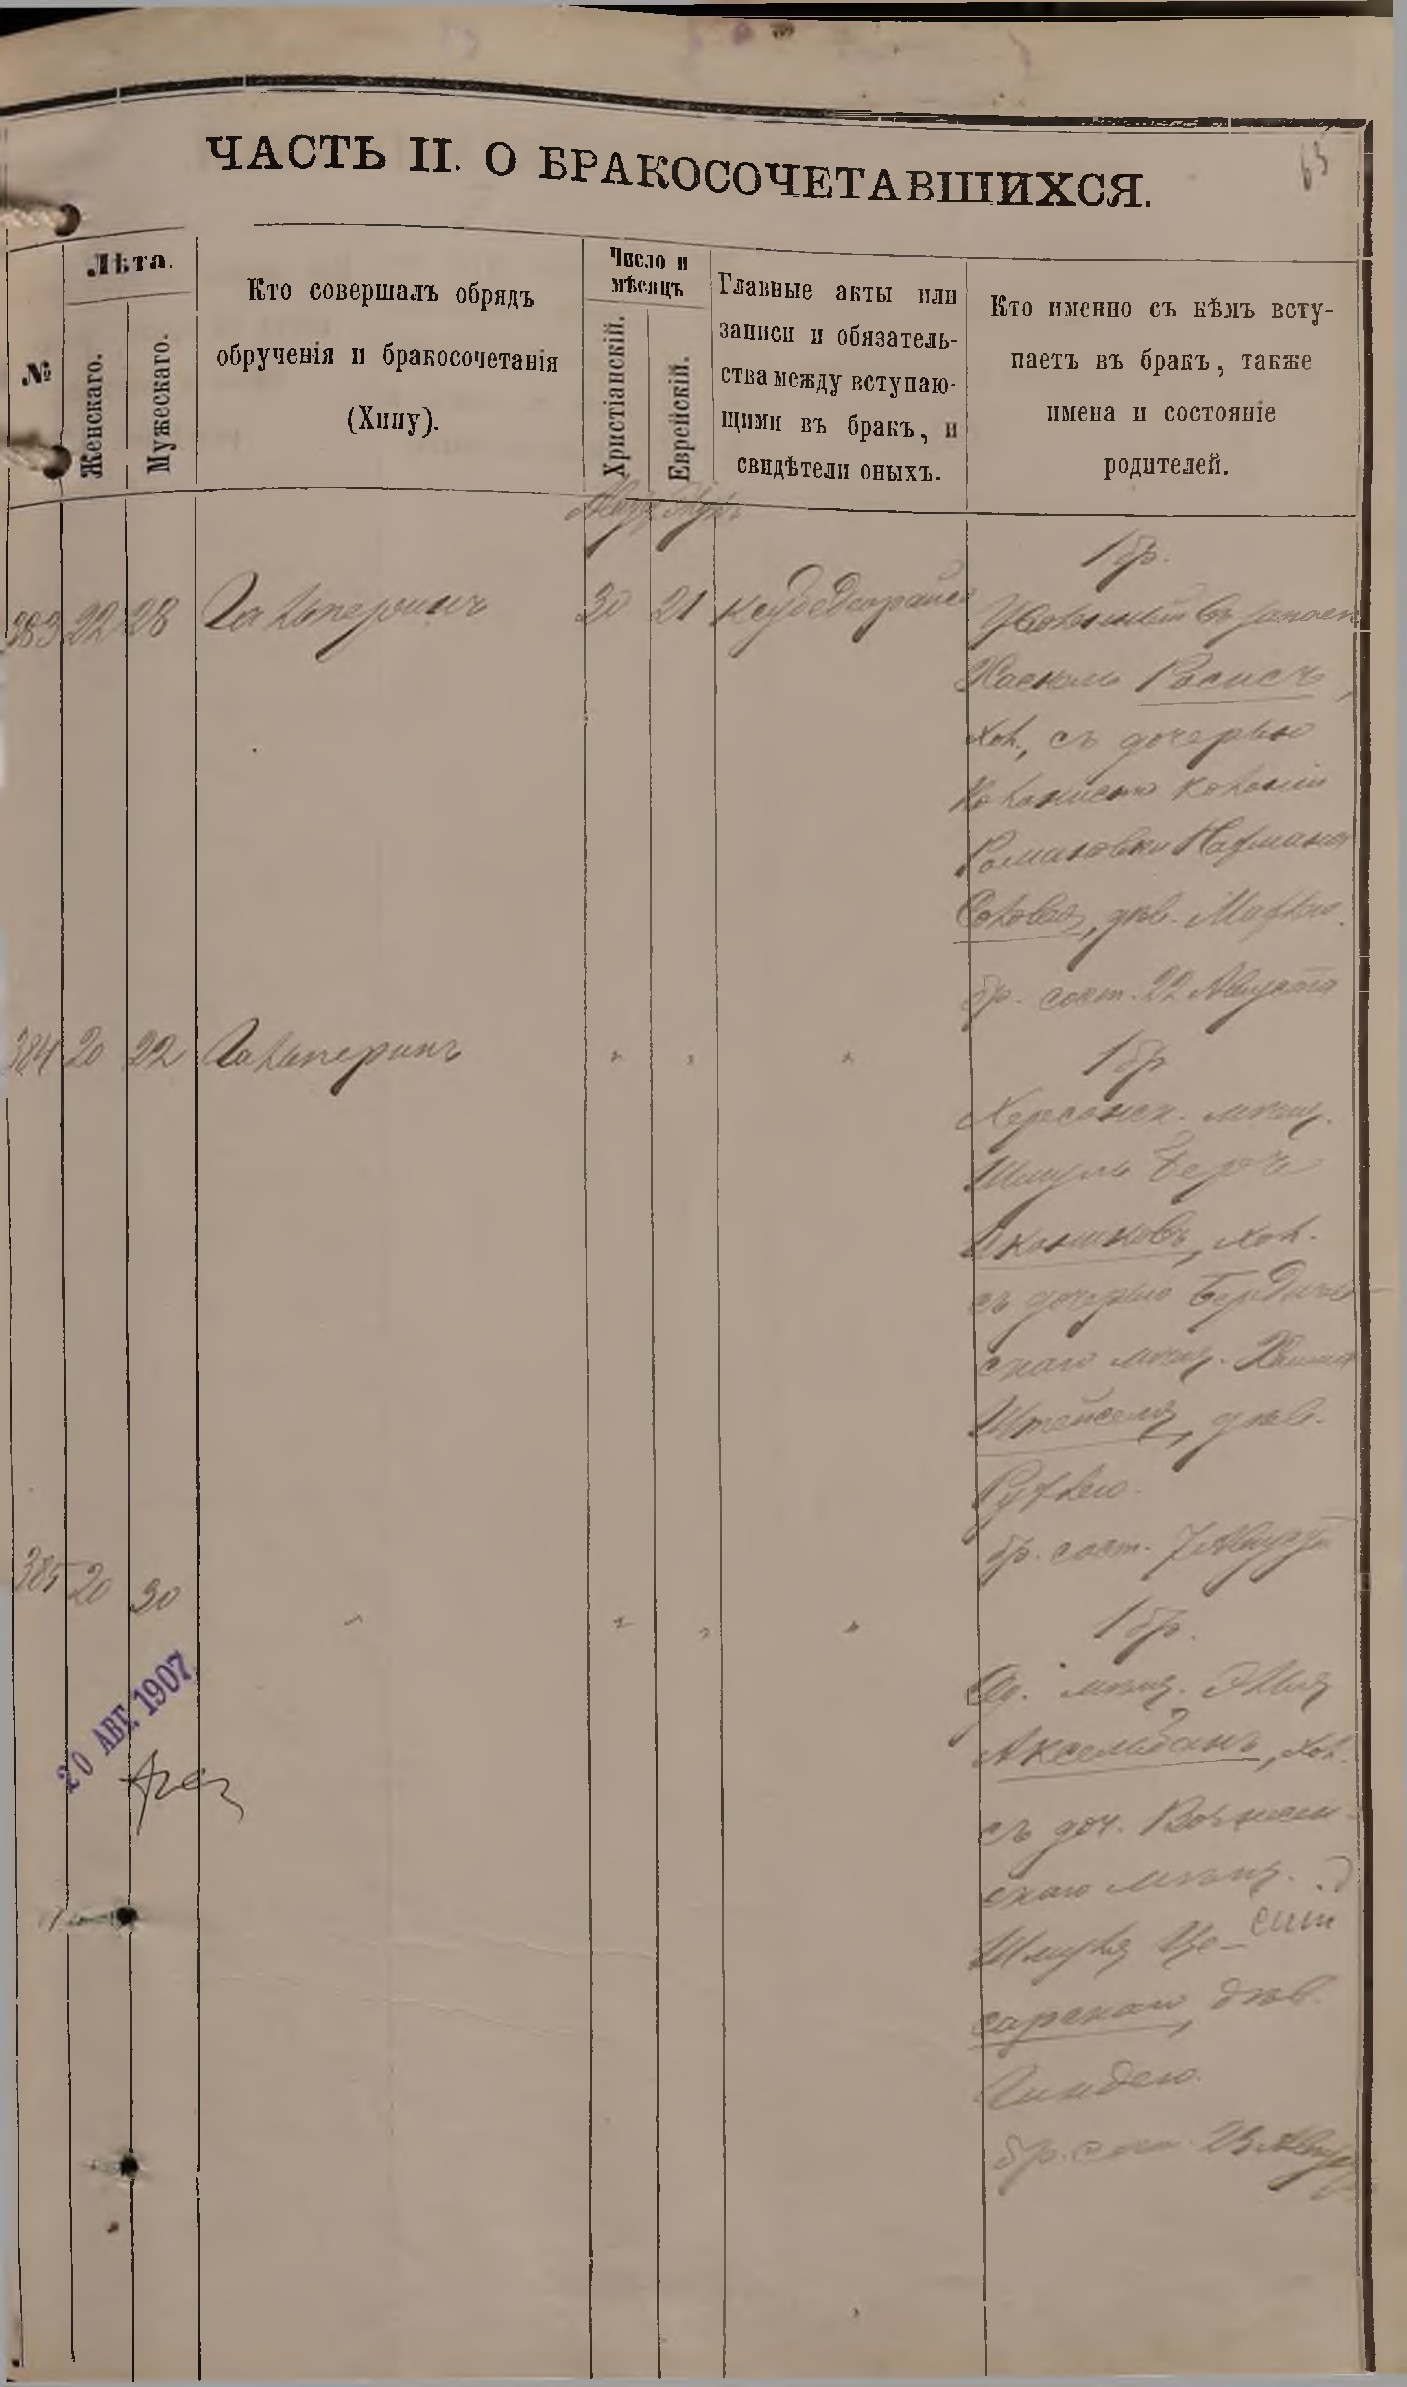 63
ЧАСТЬ II. О БРАКОСОЧЕТАВШИХСЯ.
№
Лѣта.
Женскаго.
Мужескаго.
Кто совершалъ обрядъ
обрученія и бракосочетанія
(Хипу).
Число и
мѣсяцъ
Христіанскій.
Еврейскій.
Главные акты или
записи и обязатель-
ства между вступаю-
щими въ бракъ, и
свидѣтели оныхъ.
Кто именно съ кѣмъ всту-
паетъ въ бракъ, также
имена и состояніе
родителей.
1 бр.
383 22 28 Гальперинъ 30 21
Уволенный въ запасъ
хол., съ дочерью
колониста колоніи
Романовки Нахмана
Соловея, дѣв. Махлю.
бр. сост. 22 Августа
384 20 22 Гальперинъ " " "
1 бр
Херсонск. мѣщ.
Шмуль Беръ
Иконниковъ, хол.
съ дочерью Бердичев-
скаго мѣщ. Хаима
Штейселя, дѣв.
Рухлею.
бр. сост. 7 Августа
385 20 30 " " " "
1 бр.
Од. мѣщ. Элья
Аксельбанъ, хол.
съ доч. Вознесен-
скаго мѣщ.
Шмуля Це-
сарскаго, дѣв.
Гиндею.
бр. сост. 23 Авгу
20 АВГ. 1907